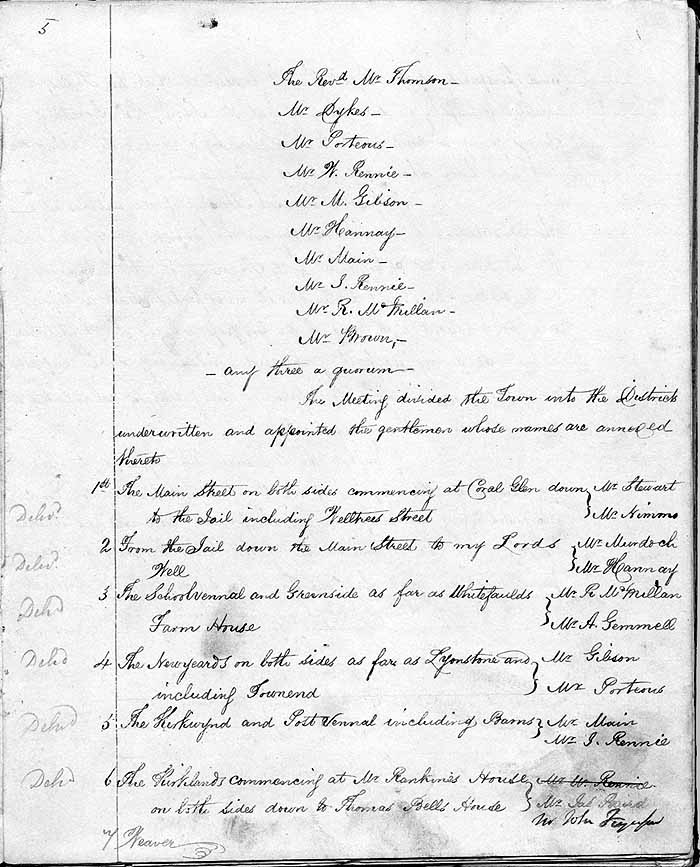 5
The Revd Mr Thomson -
Mr Dykes -
Mr Porteous -
Mr W. Rennie -
Mr M. Gibson -
Mr Hannay -
Mr Main -
Mr J. Rennie -
Mr R. McMillan -
Mr Brown, -
- any three a quorum -
The Meeting divided the Town into the Districts
underwritten and appointed the gentlemen whose names are annexed
thereto
1st The Main Street on both sides commencing at Coral Glen down } Mr Stewart
to the Jail including Welltrees Street } Mr Nimmo
Delivd.
2 From the Jail down the Main Street to my Lords { Mr Murdoch
Delivd.
Well { Mr Hannay
3 The School vennal and Greenside as far as Whitefaulds { Mr R. McMillan
Delvd
Farm House { Mr A. Gemmell
Delvd 4 The Newyards on both sides as far as Lyonstone and } Mr Gibson
including Townend } Mr Porteous
Delvd 5 The Kirkwynd and Post Vennal including Barns } Mr Main
Mr J. Rennie
Delvd 6 The Kirklands commencing at Mr Rankines House } Mr W. Rennie
on both sides down to Thomas Bells House } Mr Jas Baird
Mr John
7 Weaver